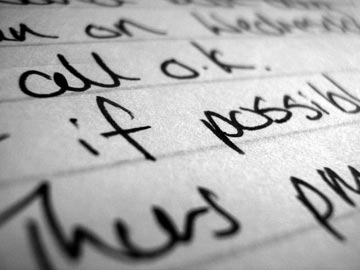 an on Wednesday
call o.k.
- if possibl
Thurs pm